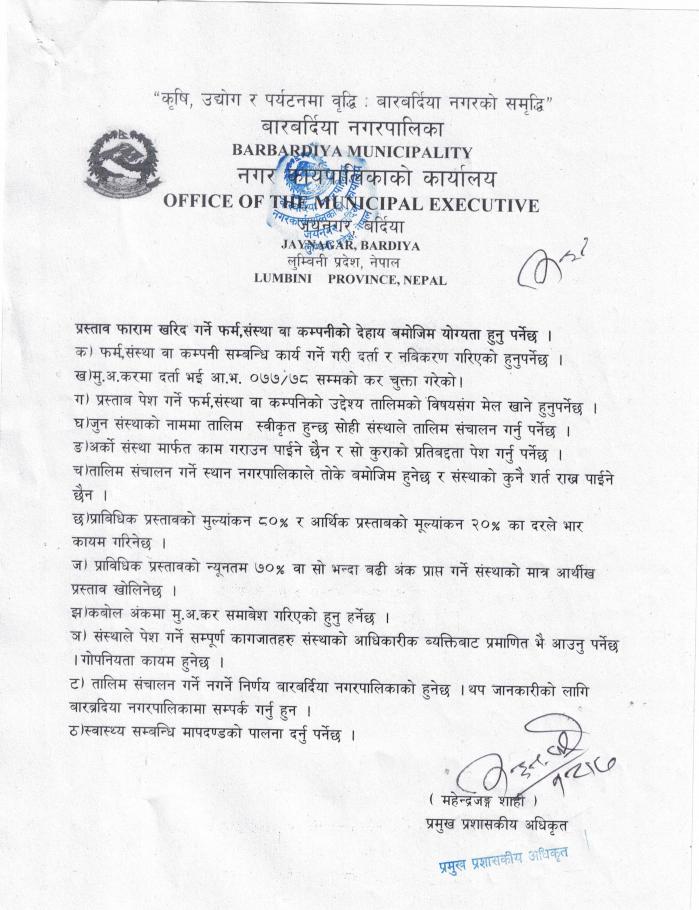 "कृषि, उद्योग र पर्यटनमा वृद्धि : बारबर्दिया नगरको समृद्धि"
बारबर्दिया नगरपालिका
BARBARDIYA MUNICIPALITY
नगर कार्यपालिकाको कार्यालय
OFFICE OF THE MUNICIPAL EXECUTIVE
जयनगर, बर्दिया
JAYNAGAR, BARDIYA
लुम्विनी प्रदेश, नेपाल
LUMBINI PROVINCE, NEPAL
प्रस्ताव फाराम खरिद गर्ने फर्म,संस्था वा कम्पनीको देहाय बमोजिम योग्यता हुनु पर्नेछ ।
क) फर्म,संस्था वा कम्पनी सम्बन्धि कार्य गर्ने गरी दर्ता र नबिकरण गरिएको हुनुपर्नेछ ।
ख)मु.अ.करमा दर्ता भई आ.भ. ०७७/७८ सम्मको कर चुक्ता गरेको।
ग) प्रस्ताव पेश गर्ने फर्म,संस्था वा कम्पनिको उद्देश्य तालिमको विषयसंग मेल खाने हुनुपर्नेछ ।
घ)जुन संस्थाको नाममा तालिम स्वीकृत हुन्छ सोही संस्थाले तालिम संचालन गर्नु पर्नेछ ।
ङ)अर्को संस्था मार्फत काम गराउन पाईने छैन र सो कुराको प्रतिबद्दता पेश गर्नु पर्नेछ ।
च)तालिम संचालन गर्ने स्थान नगरपालिकाले तोके बमोजिम हुनेछ र संस्थाको कुनै शर्त राख्न पाईने
छैन ।
छ)प्राबिधिक प्रस्तावको मुल्यांकन ८०% र आर्थिक प्रस्तावको मूल्यांकन २०% का दरले भार
कायम गरिनेछ ।
ज) प्राबिधिक प्रस्तावको न्यूनतम ७०% वा सो भन्दा बढी अंक प्राप्त गर्ने संस्थाको मात्र आर्थीख
प्रस्ताव खोलिनेछ ।
झ)कबोल अंकमा मु.अ.कर समाबेश गरिएको हुनु हर्नेछ ।
ञ) संस्थाले पेश गर्ने सम्पूर्ण कागजातहरु संस्थाको आधिकारीक ब्यक्तिबाट प्रमाणित भै आउनु पर्नेछ
।गोपनियता कायम हुनेछ ।
ट) तालिम संचालन गर्ने नगर्ने निर्णय बारबर्दिया नगरपालिकाको हुनेछ ।थप जानकारीको लागि
बारब्रदिया नगरपालिकामा सम्पर्क गर्नु हुन ।
ठ)स्वास्थ्य सम्बन्धि मापदण्डको पालना दर्नु पर्नेछ ।
( महेन्द्रजङ्ग शाही )
प्रमुख प्रशासकीय अधिकृत
प्रमुख प्रशासकीय अधिकृत